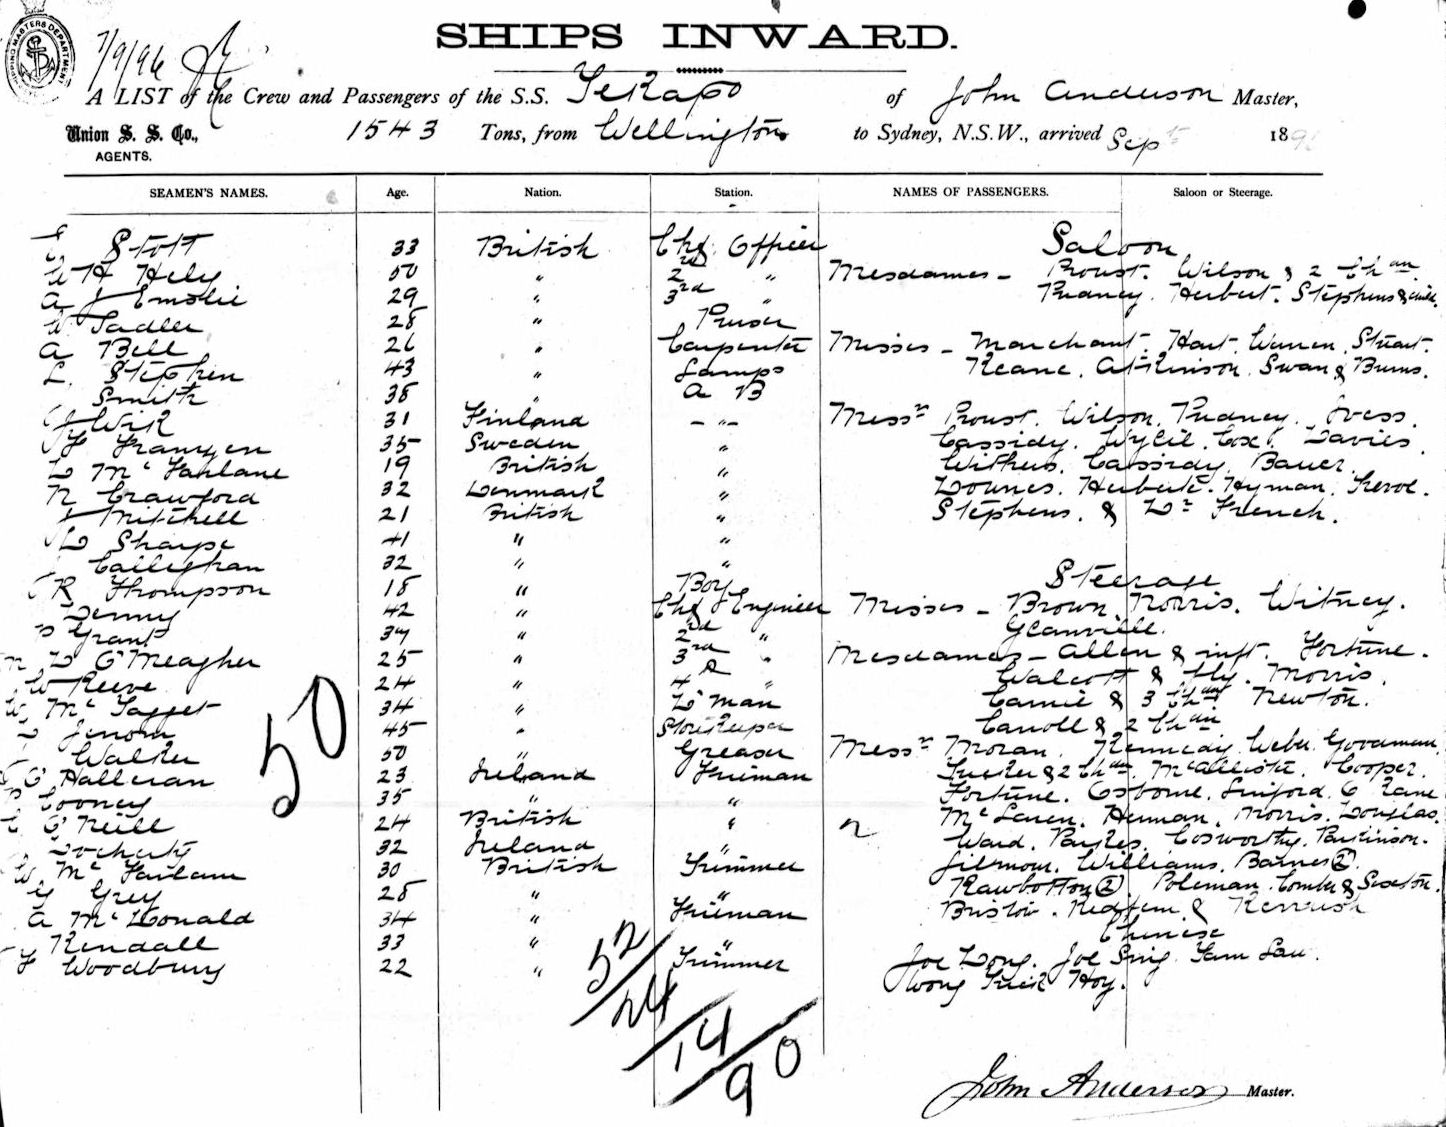 SHIPPING MASTERS DEPARTMENT
7/9/96
SHIPS INWARD.
A LIST of the Crew and Passengers of the S.S. Tekapo of John Anderson Master,
Union S. S. Co., 1543 Tons, from Wellington to Sydney, N.S.W., arrived Sep 189
AGENTS.
SEAMEN'S NAMES. Age. Nation. Station. NAMES OF PASSENGERS. Saloon or Steerage.
Stott 33 British Chf Officer Saloon
W H Hely 50 " 2nd " Mesdames - Proust. Wilson & 2 Chn.
A J Emslie 29 " 3rd " Pudney. Herbert. Stephens & child.
W Sadler 28 " Purser
A Bell 26 " Carpenter Misses - Marchant. Hart. Warren. Stuart.
L. Stephen 43 " Lamps Keane. Atkinson. Swan & Burns.
Smith 38 " A B
J Wik 31 Finland - " - Messrs Proust. Wilson. Pudney.
35 Sweden " Cassidy. Wylie. Cox. Davies.
D McFarlane 19 British " Withers. Cassidy. Bauer.
N Crawford 32 Denmark " Downes. Herbert. Hyman.
J Mitchell 21 British " Stephens. & Dr French.
D Sharpe 41 " "
Callighan 32 " "
R Thompson 18 " Boy Steerage
Denny 42 " Chf Engineer Misses - Brown. Norris. Witney.
Grant 37 " 2nd " Glanville.
D O'Meagher 25 " 3rd " Mesdames - Allen & inft. Fortune.
W Reeve 24 " 4 " Walcott & fly. Morris.
W McTagget 34 " D'Man & 3 Chn. Newton.
45 " Storekeeper Carroll & 2 Chn
Walker 50 " Greaser Messrs Moran. Kennedy. Weber. Goodman.
O'Halleran 23 Ireland Fireman Tucker & 2 Chn. McAllister. Cooper.
Cooney 35 " " Fortune. Osborne. Linford. O'Kane
O'Neill 24 British " McLaren. Herman. Morris. Douglas.
Docherty 32 Ireland " Ward. Cosworthy. Parkinson.
W McFarlane 30 British Trimmer Gilmour. Williams. Barnes (2).
G Grey 28 " " Rawbotton (2). Poleman. Comber & Sexton.
A McDonald 34 " Fireman Bristow. Redfern &
Kendall 33 " " Chinese
F Woodbury 22 " Trimmer Joe Dong. Joe Sing. Yam Lau.
Wong Hoy.
50
52
24
14
90
John Anderson Master.